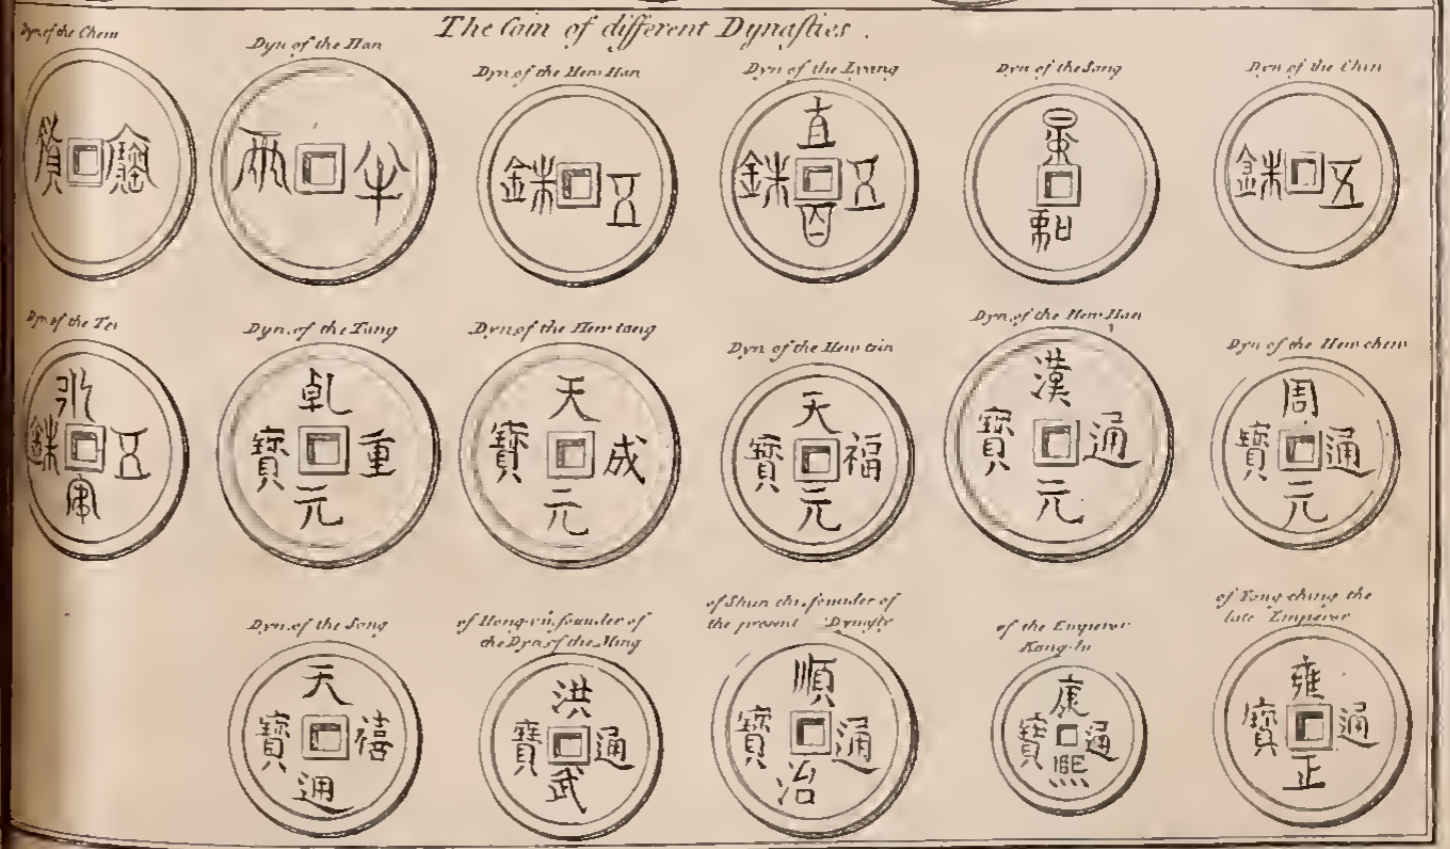 The Coin of different Dynaſties .
Dyn of the Chew
寶貨
Dyn of the Han
半兩
Dyn of the Hew Han
五銖
Dyn of the Lyang
五銖
直
Dyn of the Song
景和
Dyn of the Chin
五銖
Dyn of the Tsi
五銖
Dyn. of the Tang
乾元重寶
Dyn. of the Hew tang
天成元寶
Dyn of the Hew tsin
天福元寶
Dyn. of the Hew Han
漢元通寶
Dyn of the Hew chew
周元通寶
Dyn. of the Song
天禧通寶
of Hong vû, founder of
the Dyn. of the Ming
洪武通寶
of Shun chi, founder of
the present Dynaſty
順治通寶
of the Emperor
Kang-hi
康熙通寶
of Yong ching the
late Emperor
雍正通寶